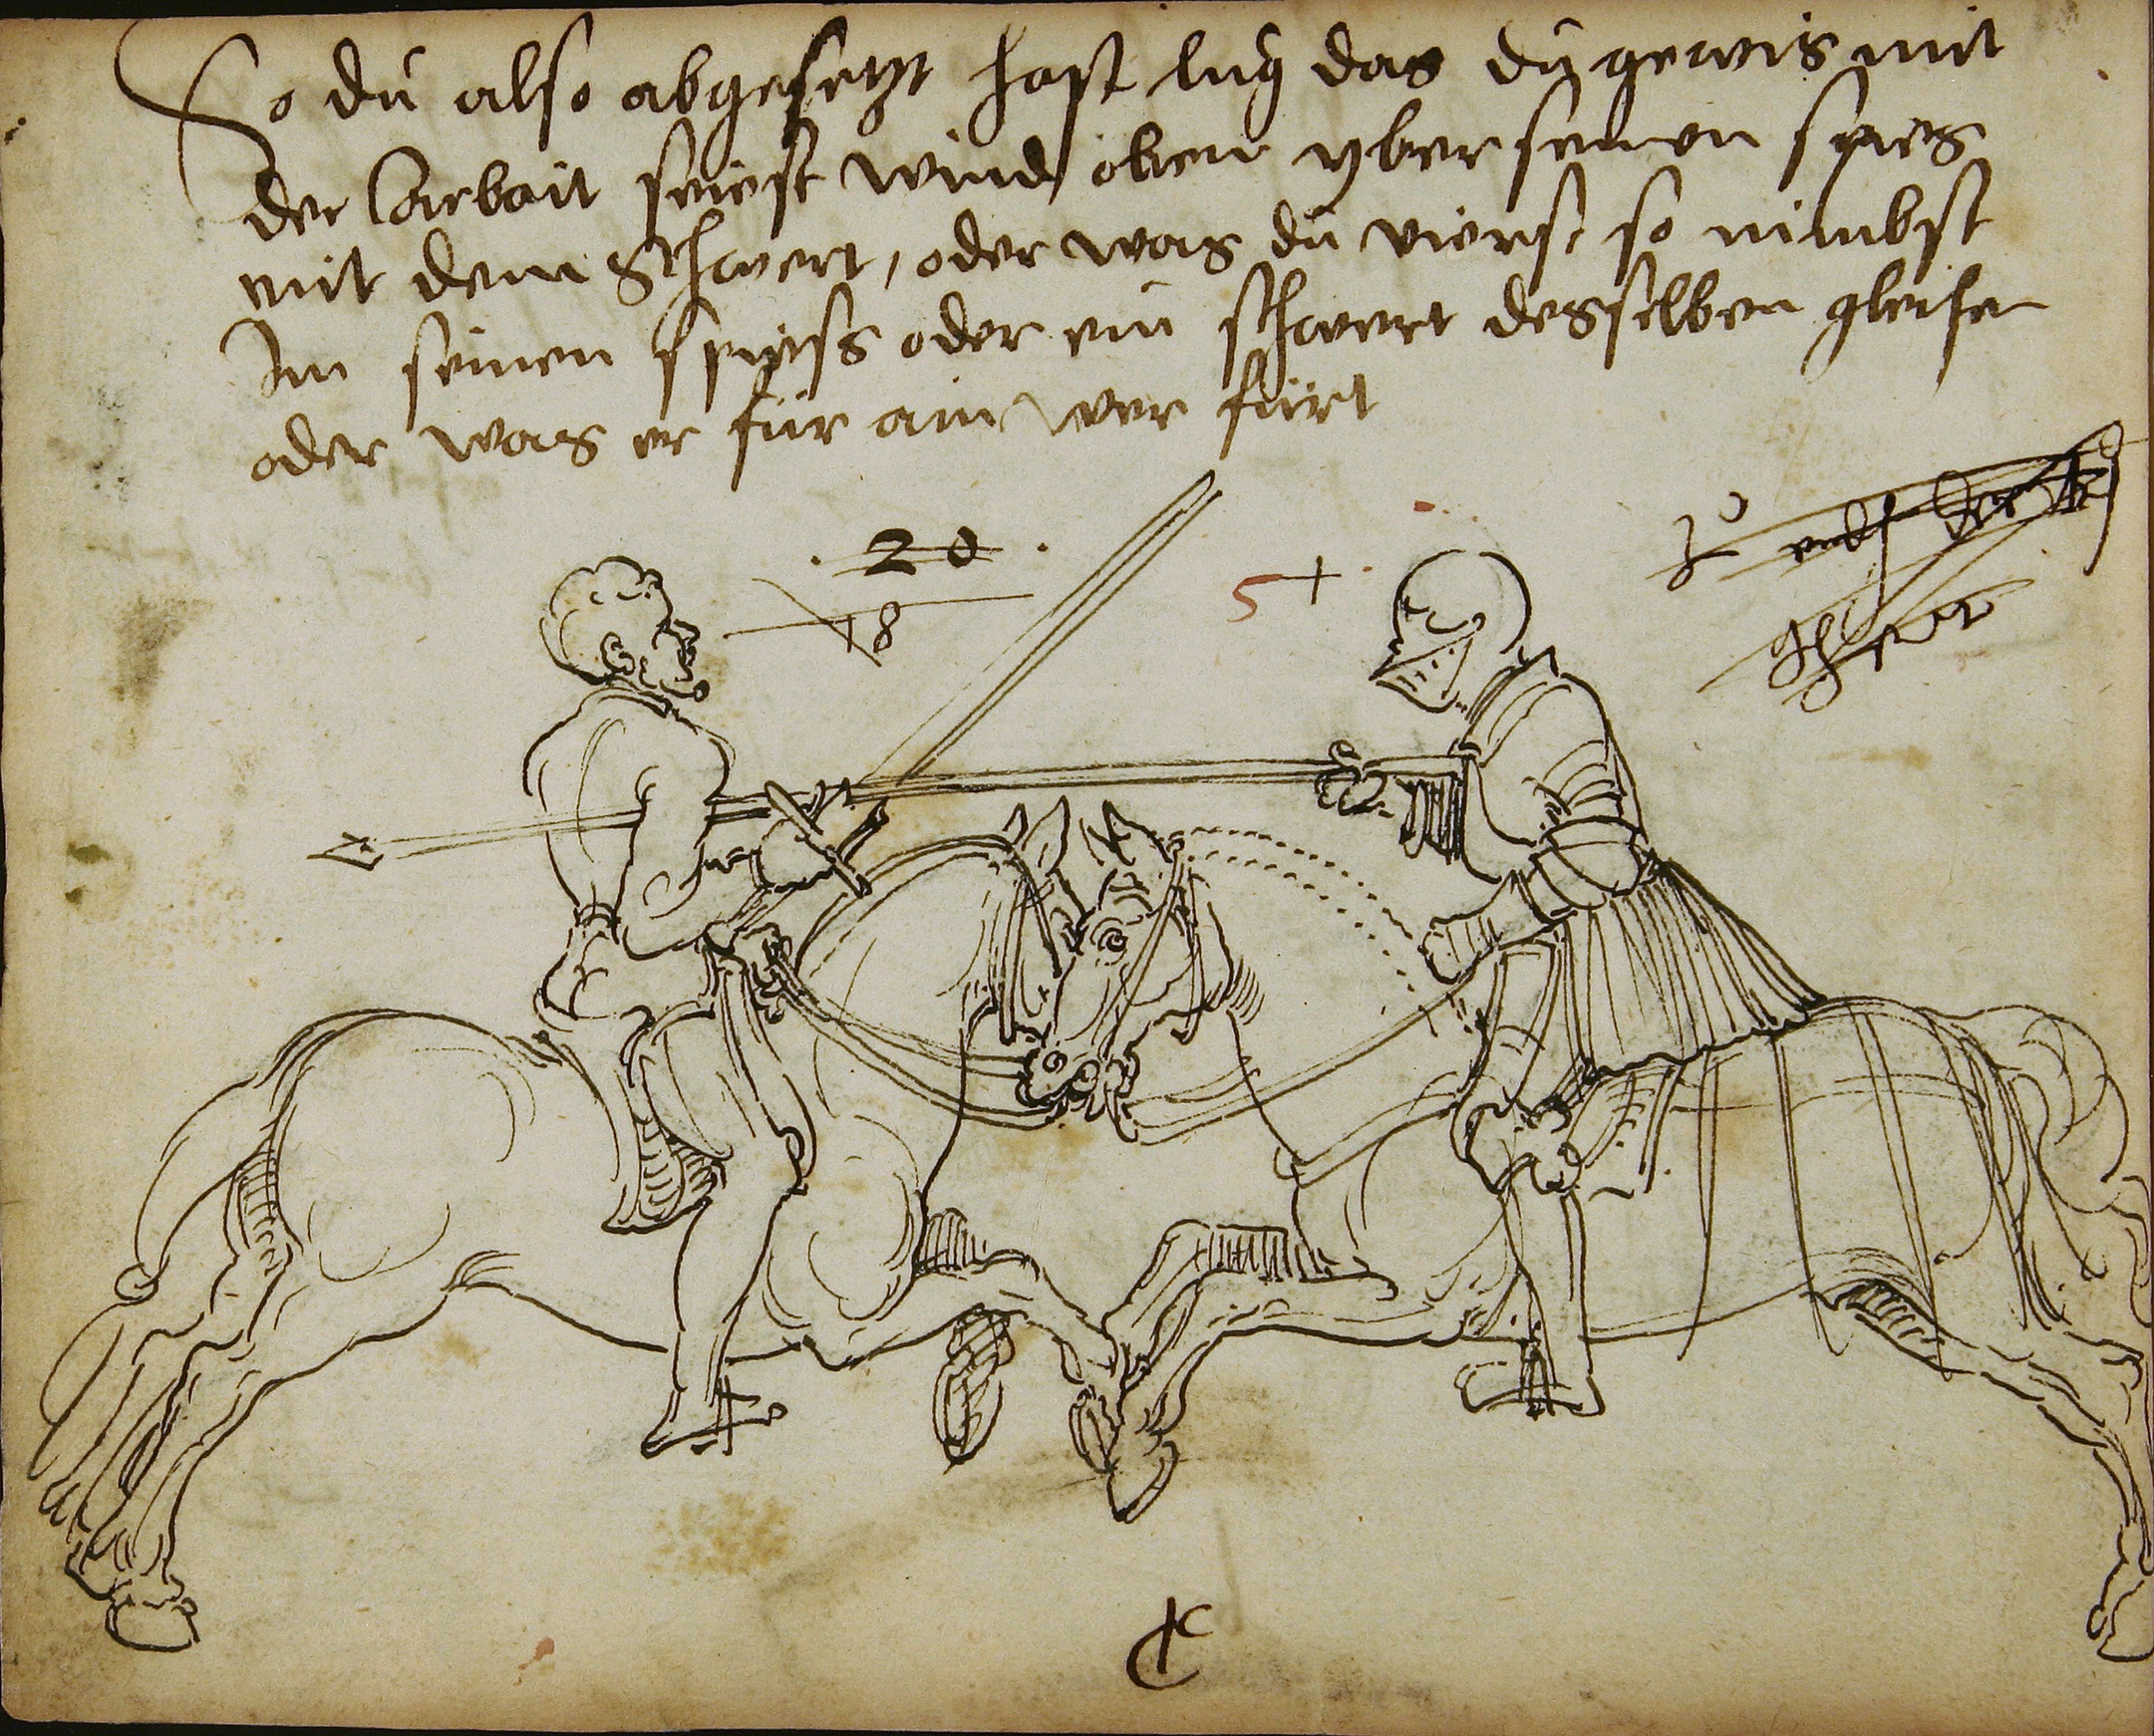 So du also abgesetzt hast lug das du gewis mit
der Arbait seiest wind oben yber seinen spies
mit dem Schwert, oder was du vierst so nimbst
Im seinen spiess oder ein schwert desselben gleichen
oder was er für ain wer fürt
. 20 .
18
5 +